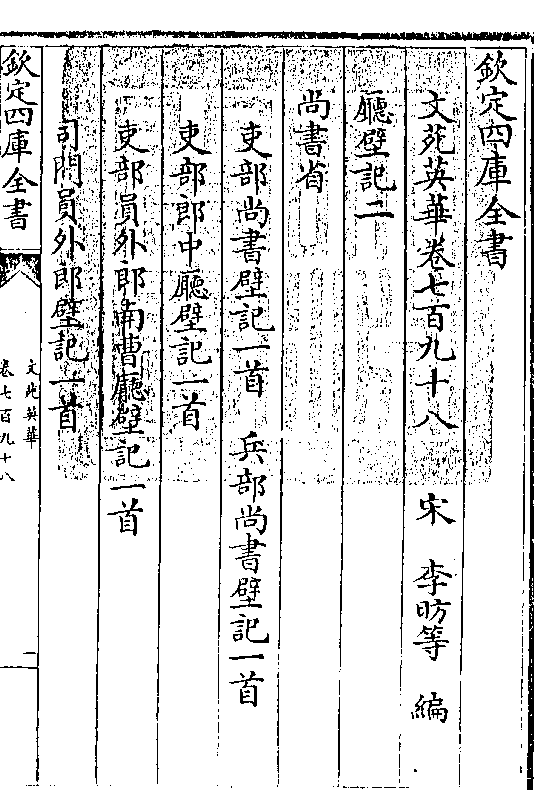 欽定四庫全書
文苑英華卷七百九十八　宋　李昉等　編
廳壁記二
尚書省
吏部尚書壁記一首　兵部尚書壁記一首
吏部郎中廳壁記一首
吏部員外郎南曹廳壁記一首
司門員外郎壁記一首
欽定四庫全書
文苑英華
卷七百九十八
一